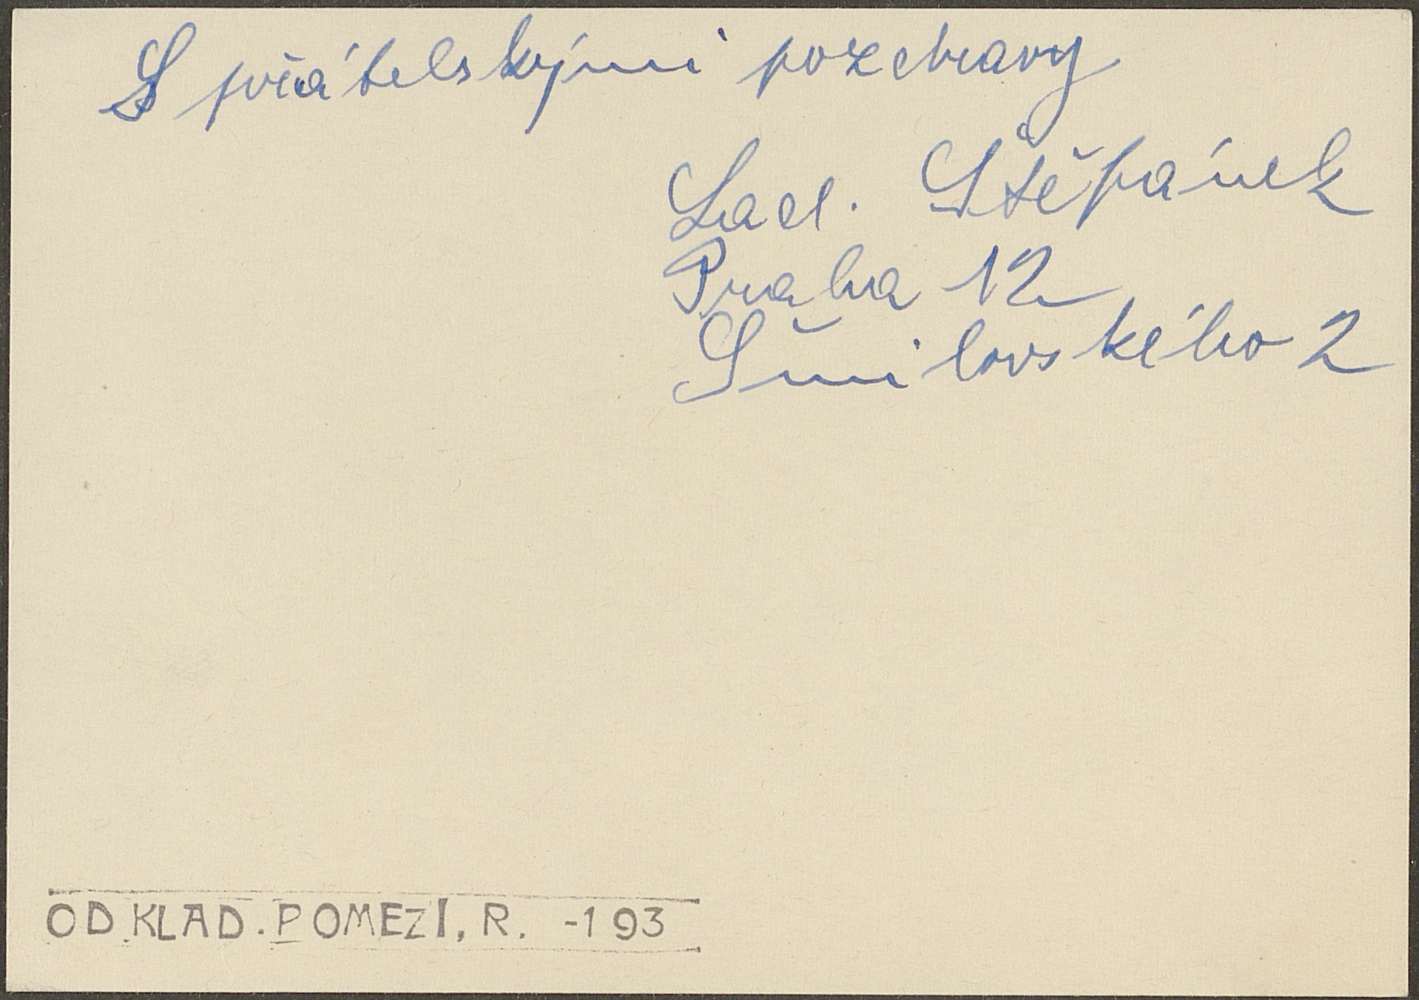 S přátelskými pozdravy
Lad. Štěpánek
Praha 12
Šmilovského 2
OD KLAD. POMEZÍ, R. -193